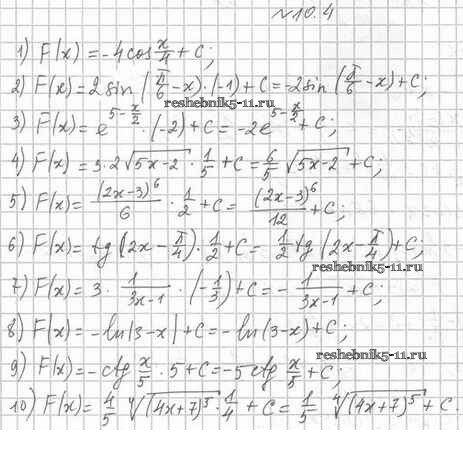 №10.4
1) F(x) = -4cos x/4 + C;
2) F(x) = 2sin(π/6 - x)·(-1) + C = -2sin(π/6 - x) + C;
reshebnik5-11.ru
3) F(x) = e^(5-x/2)·(-2) + C = -2e^(5-x/2) + C;
4) F(x) = 3·2√(5x-2)·1/5 + C = 6/5 √(5x-2) + C;
5) F(x) = (2x-3)^6/6·1/2 + C = (2x-3)^6/12 + C;
6) F(x) = tg(2x - π/4)·1/2 + C = 1/2 tg(2x - π/4) + C;
reshebnik5-11.ru
7) F(x) = 3·1/(3x-1)·(-1/3) + C = -1/(3x-1) + C;
8) F(x) = -ln|3-x| + C = -ln(3-x) + C;
reshebnik5-11.ru
9) F(x) = -ctg x/5·5 + C = -5ctg x/5 + C;
10) F(x) = 4/5 ∜((4x+7)^5)·1/4 + C = 1/5 ∜((4x+7)^5) + C.